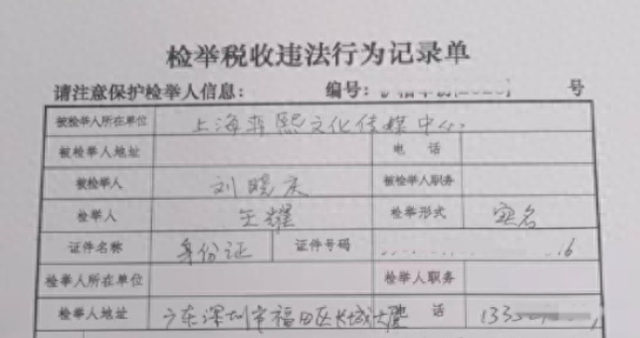 检举税收违法行为记录单
请注意保护检举人信息： 编号： 号
被检举人所在单位 上海 熙文化传媒中心
被检举人地址 电话
被检举人 刘晓庆 被检举人职务
检举人 王耀 检举形式 实名
证件名称 身份证 证件号码 16
检举人所在单位 检举人职务
检举人地址 广东深圳市福田区长城大 话 133